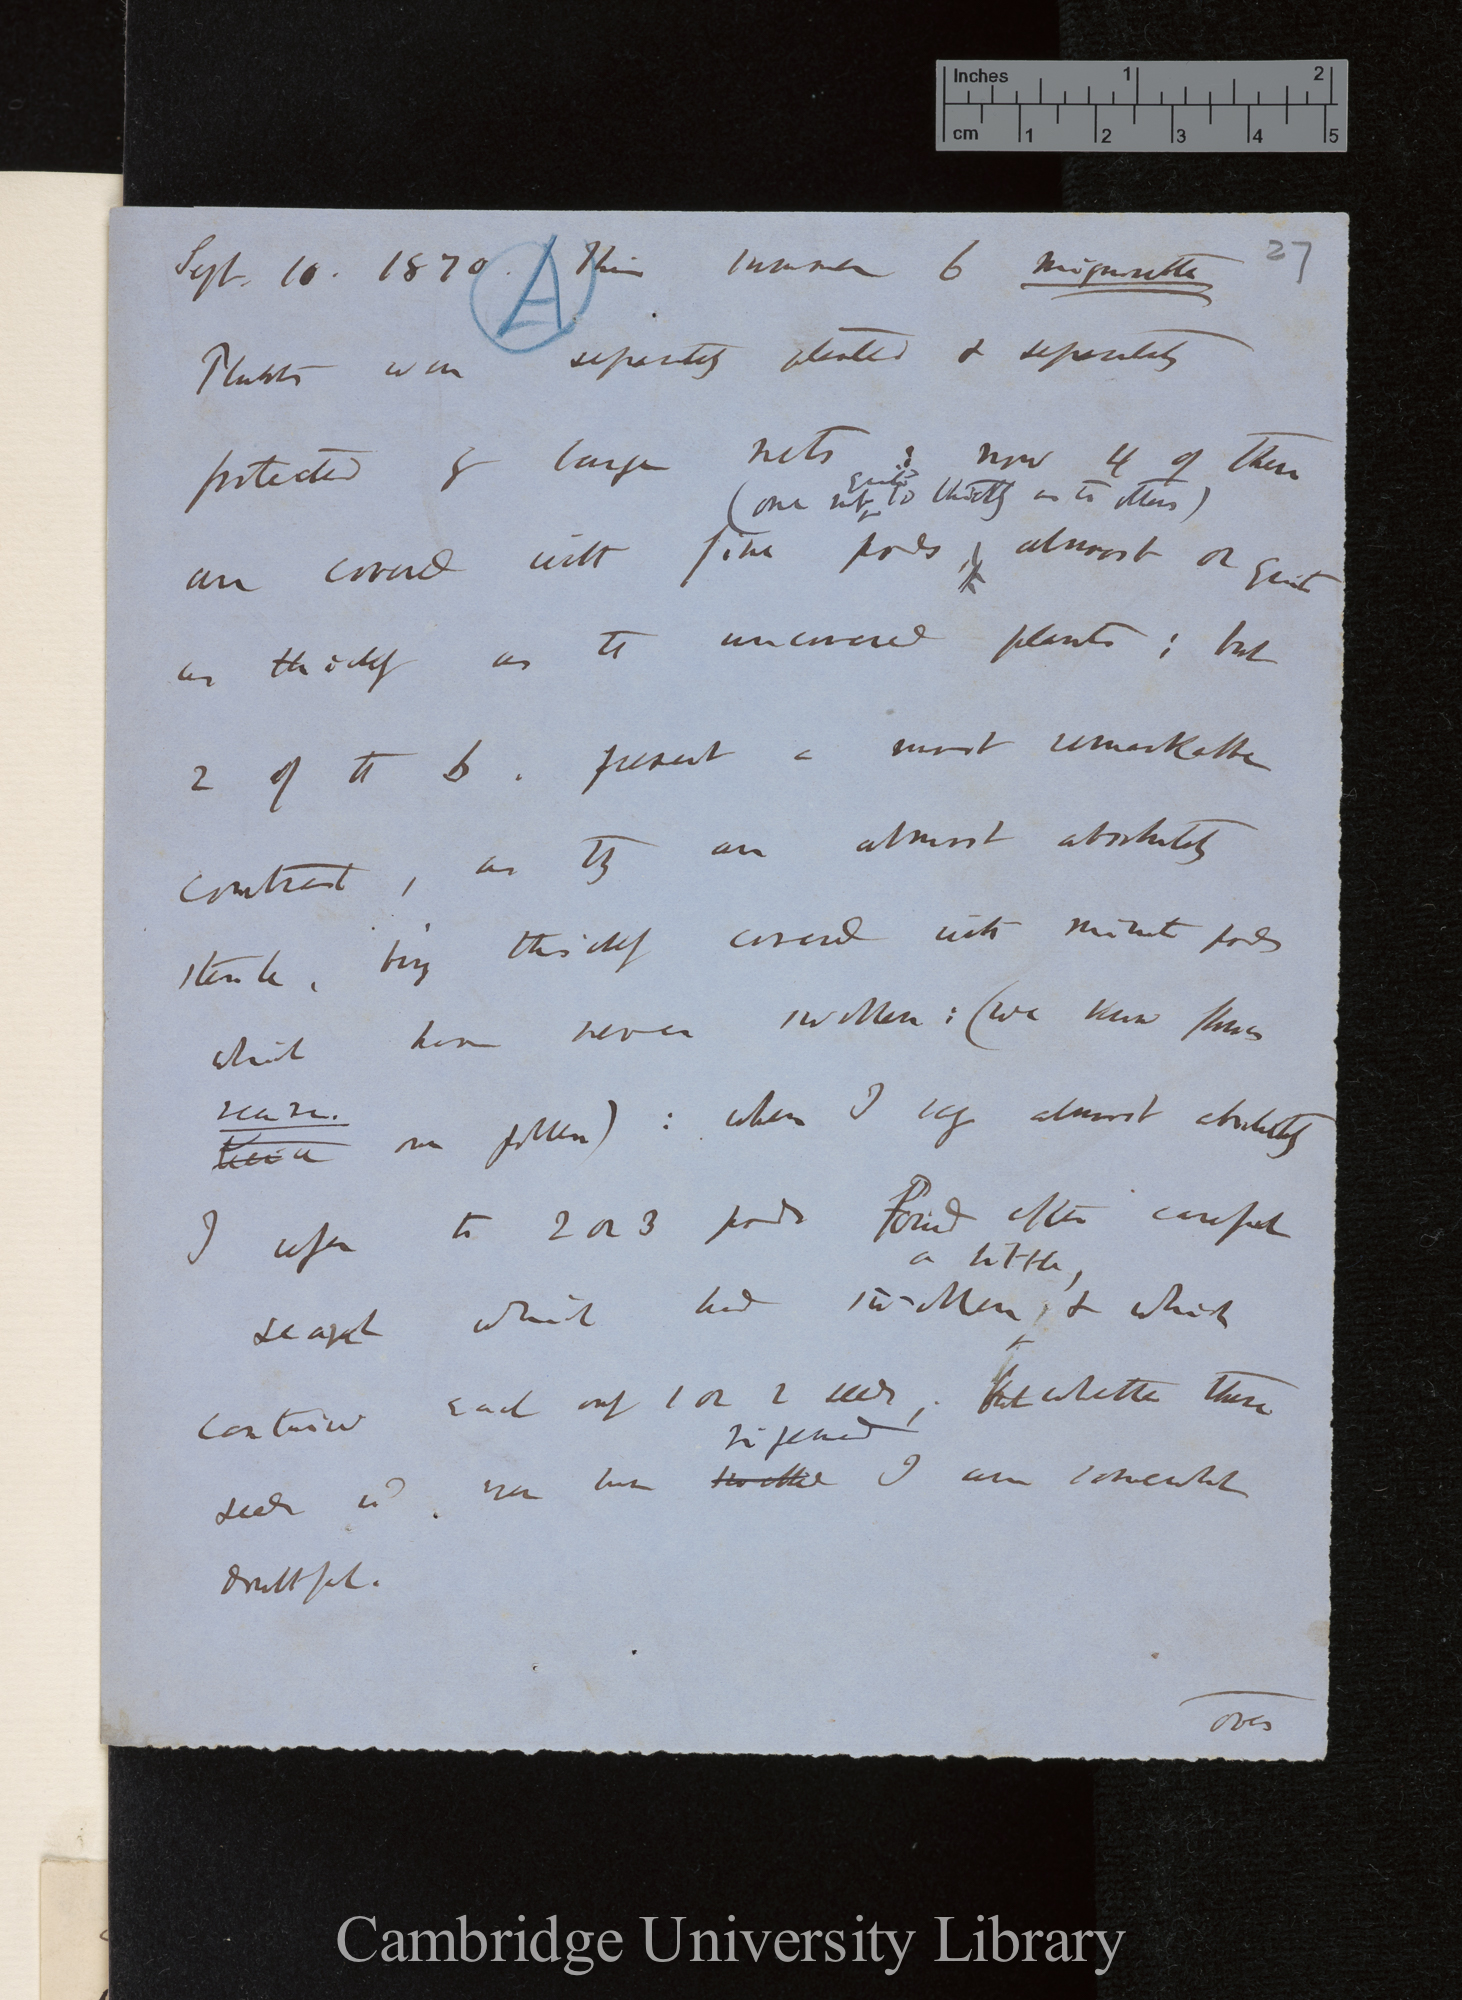 Inches 1 2
cm 1 2 3 4 5
27
Sept. 10. 1870. A This summer 6 mignonette
Plants were separately planted & separately
protected by large nets; now 4 of them
(one not quite so thickly as the others)
are covered with fine pods, almost or quite
as thickly as the uncovered plants; but
2 of the 6. present a most remarkable
contrast, as they are almost absolutely
sterile, being thickly covered with minute pods
which have never swollen: (we know
on pollen): when I say almost absolutely
I refer to 2 or 3 pods found after careful
a little,
search which had swollen, & which
contained each only 1 or 2 seeds; but whether these
ripened
seeds wd ever have I am somewhat
doubtful.
over
Cambridge University Library